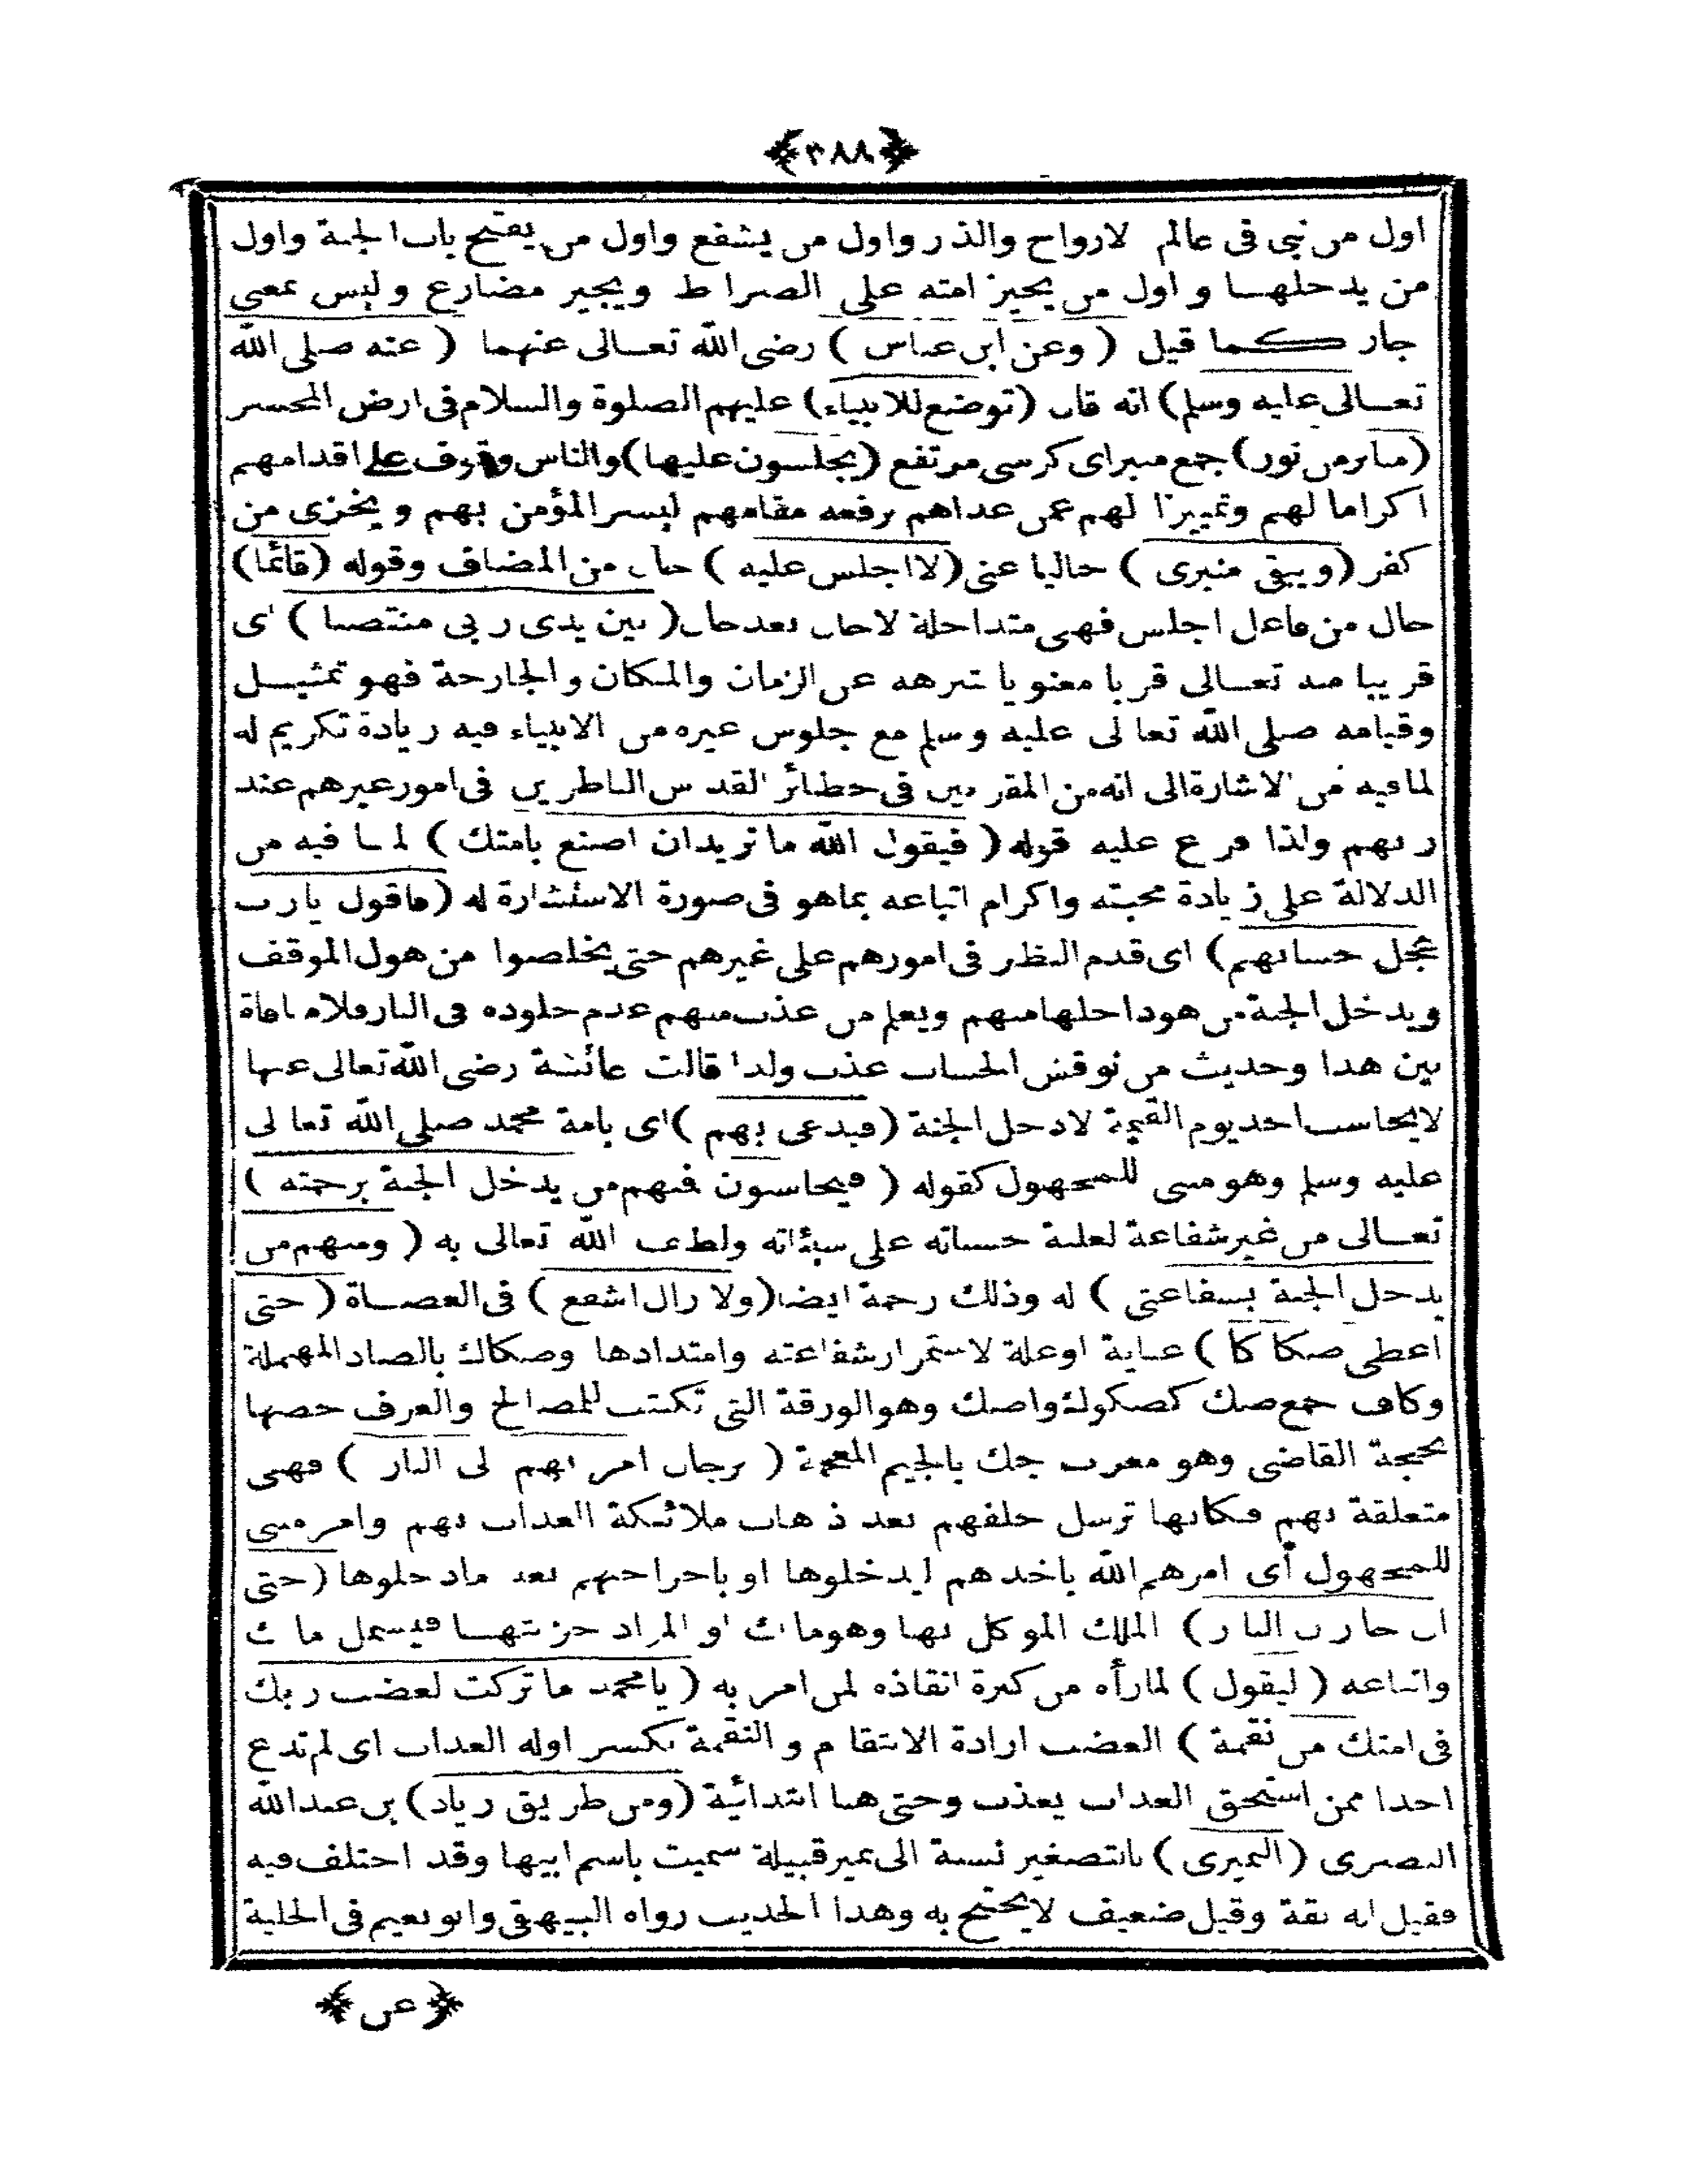 ﴿٣٨٨﴾
اول من نبى فى عالم الارواح والذر واول من يشفع واول من يفتح باب الجنة واول
من يدخلهـا واول من يجيز امته على الصراط ويجيز مضارع وليس بمعنى
جاز كـما قيل ( وعن ابن عباس ) رضى الله تعـالى عنهما ( عنه صلى الله
تعـالى عليه وسلم) انه قال (توضع للانبياء) عليهم الصلوة والسلام فى ارض المحشر
(منابر من نور) جمع منبر اى كرسى مرتفع (يجلسون عليها) والناس وقوف على اقدامهم
اكراما لهم وتمييزا لهم عمن عداهم برفعة مقامهم ليسر المؤمن بهم ويخزى من
كفر (ويبقى منبرى ) خاليا عنى (لا اجلس عليه ) حال من المضاف وقوله (قائما)
حال من فاعل اجلس فهى متداخلة لاحال بعد حال (بين يدى ربى منتصبا ) اى
قريبا منه تعـالى قربا معنويا تنزهه عن الزمان والمكان والجارحة فهو تمثيـل
وقيامه صلى الله تعالى عليه وسلم مع جلوس غيره من الانبياء فيه زيادة تكريم له
لما فيه من الاشارة الى انه من المقربين فى حظائر القدس الناظرين فى امور غيرهم عند
ربهم ولذا فرع عليه قوله ( فيقول الله ما تريد ان اصنع بامتك ) لمـا فيه من
الدلالة على زيادة محبته واكرام اتباعه بماهو فى صورة الاستشارة له (فاقول يارب
عجل حسابهم) اى قدم النظر فى امورهم على غيرهم حتى يخلصوا من هول الموقف
ويدخل الجنة من هو داخلها منهم ويعلم من عذب منهم عدم خلوده فى النار فلا منافاة
بين هذا وحديث من نوقش الحساب عذب ولذا قالت عائشة رضى الله تعالى عنها
لا يحاسب احد يوم القيمة الا دخل الجنة (فيدعى بهم ) اى بامة محمد صلى الله تعالى
عليه وسلم وهو مبنى للمجهول كقوله ( فيحاسبون فمنهم من يدخل الجنة برحمته )
تعـالى من غير شفاعة لغلبة حسناته على سيئاته ولطف الله تعالى به ( ومنهم من
يدخل الجنة بشفاعتى ) له وذلك رحمة ايضا (ولا ازال اشفع ) فى العصـاة ( حتى
اعطى صكاكا ) غـاية او علة لاستمرار شفاعته وامتدادها وصكاك بالصاد المهملة
وكاف جمع صك كصكوك واصك وهو الورقة التى تكتب للمصالح والعرف خصها
بحجة القاضى وهو معرب جك بالجيم المعجمة ( برجال امر بهم الى النار ) فهى
متعلقة بهم فكانها ترسل خلفهم بعد ذهاب ملائكة العذاب بهم وامر مبنى
للمجهول اى امرهم الله باخذهم ليدخلوها او باخراجهم بعد مادخلوها (حتى
ان خازن النار ) الملك الموكل بها وهو مالك او المراد خزنتهـا فيشمل مالك
واتباعه ( ليقول ) لمارأه من كثرة انقاذه لمن امر به ( يا محمد ما تركت لغضب ربك
فى امتك من نقمة ) الغضب ارادة الانتقام والنقمة بكسر اوله العذاب اى لم تدع
احدا ممن استحق العذاب يعذب وحتى هنا ابتدائية (ومن طريق زياد) بن عبدالله
البصرى (النميرى ) بالتصغير نسبة الى نمير قبيلة سميت باسم ابيها وقد اختلف فيه
فقيل انه ثقة وقيل ضعيف لا يحتج به وهذا الحديث رواه البيهقى وابو نعيم فى الحلية
﴿ عن ﴾